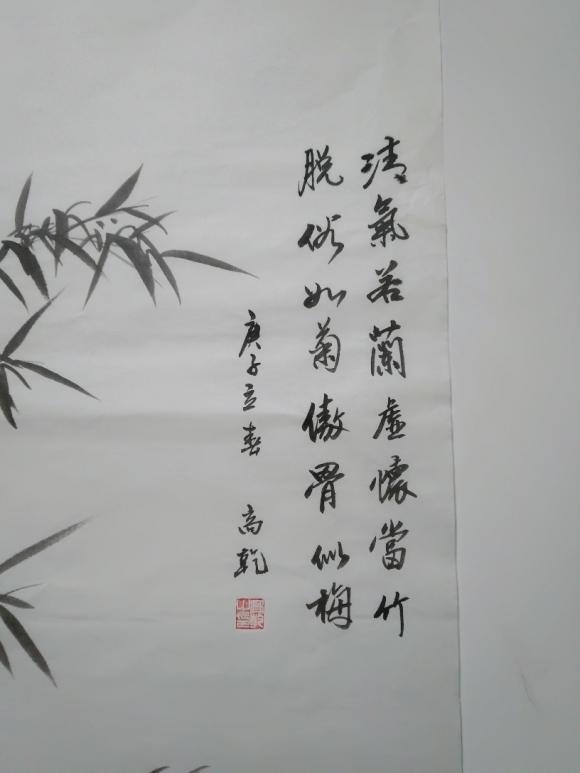 清氣若蘭虛懷當竹
脫俗如菊傲骨似梅
庚子立春 高乾